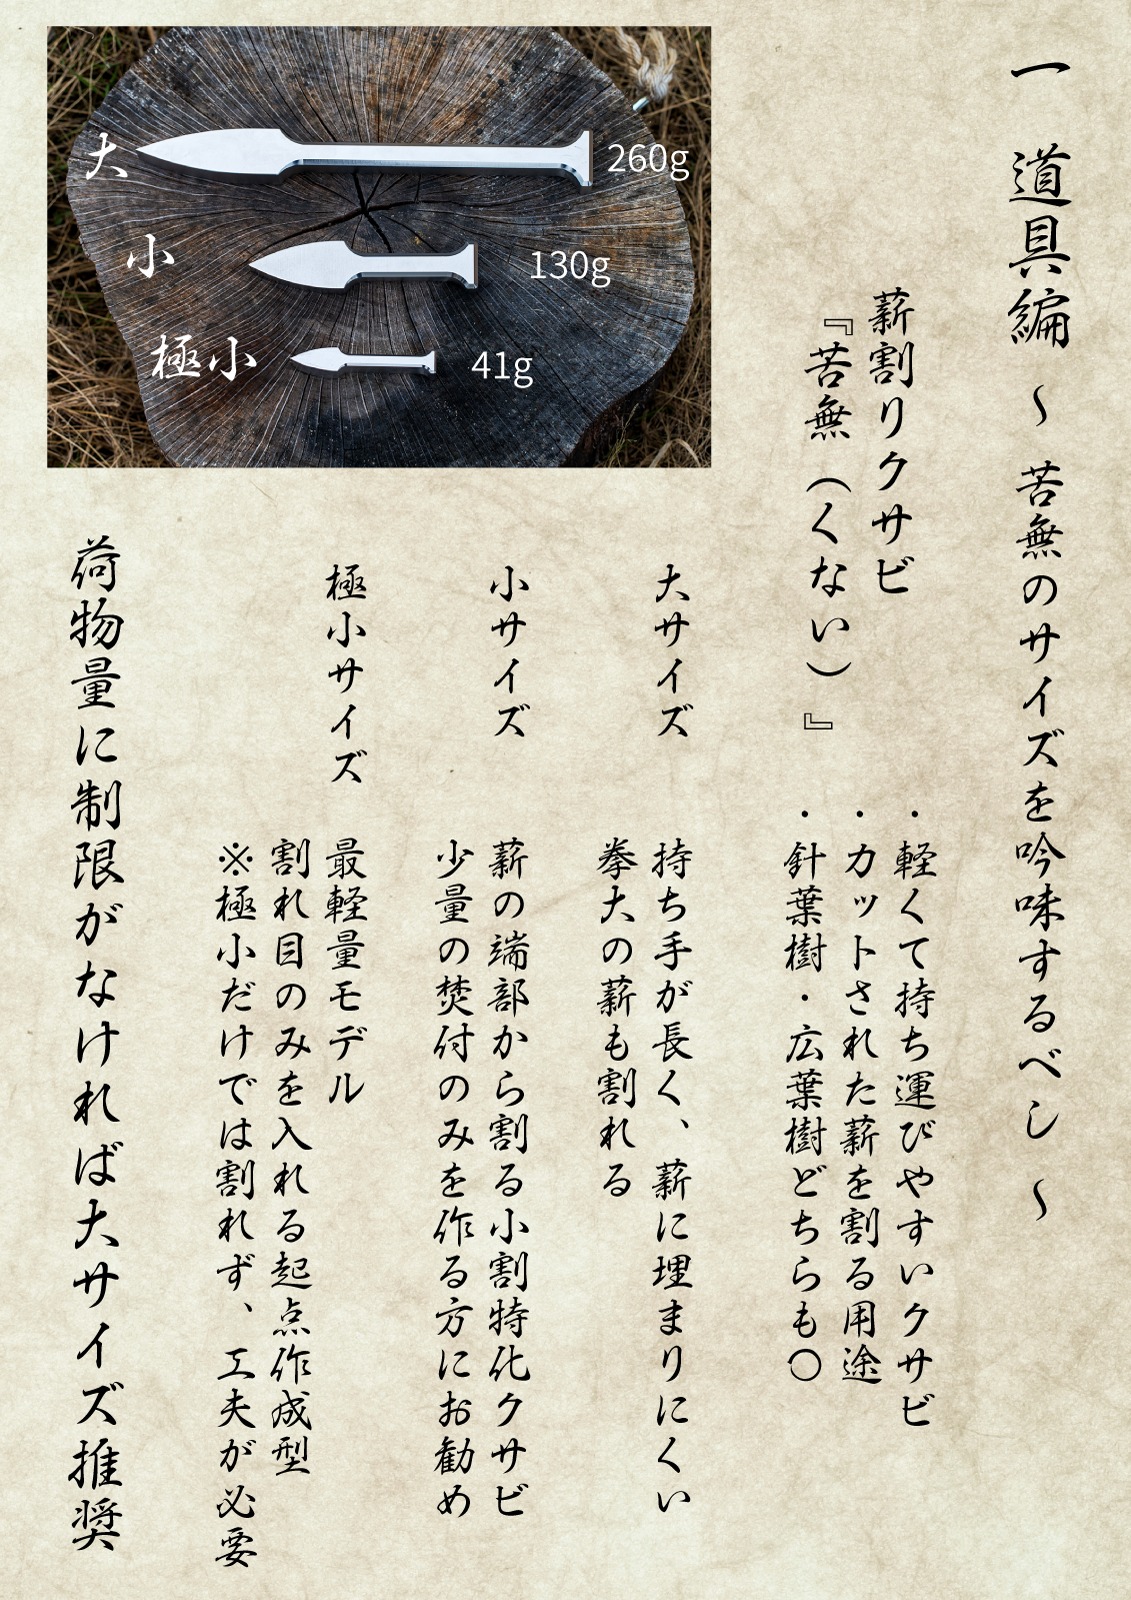 一 道具編 〜 苦無のサイズを吟味するべし 〜
薪割りクサビ
『苦無（くない）』
・軽くて持ち運びやすいクサビ
・カットされた薪を割る用途
・針葉樹・広葉樹どちらも〇
大 260g
小 130g
極小 41g
大サイズ
持ち手が長く、薪に埋まりにくい
拳大の薪も割れる
小サイズ
薪の端部から割る小割特化クサビ
少量の焚付のみを作る方にお勧め
極小サイズ
最軽量モデル
割れ目のみを入れる起点作成型
※極小だけでは割れず、工夫が必要
荷物量に制限がなければ大サイズ推奨